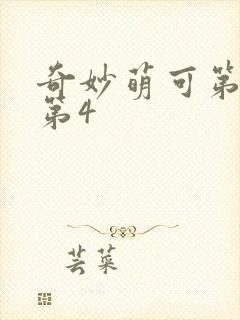 奇妙萌可第
第4
芸菜